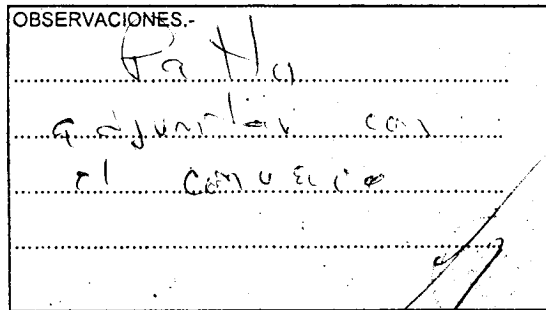 OBSERVACIONES.-
adjuntar con
el convenio